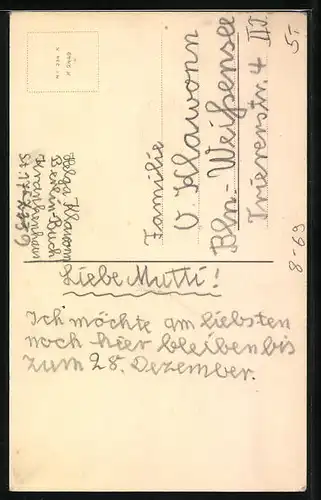 Helga Klawonn
Berlin-Buch
Krankenhaus
Familie
O. Klawonn
Bln.-Weißensee
Triererstr. 4 III
5.-
8-69
Liebe Mutti!
Ich möchte am liebsten
noch hier bleiben bis
zum 28. Dezember.